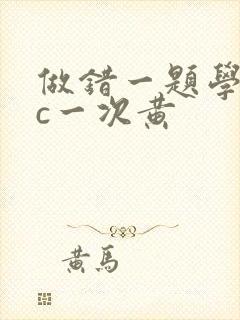 做錯一題學
c一次黃
黃馬